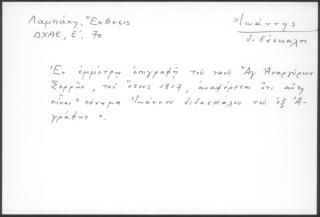 Λαμπάκη, Ἔκθεσις
ΔΧΑΕ, Ε΄. 70
Ἰωάννης
διδάσκαλος
Ἐν ἐμμέτρῳ ἐπιγραφῇ τοῦ ναοῦ "Ἁγ. Ἀναργύρων
Σερρῶν, τοῦ ἔτους 1817, ἀναφέρεται ὅτι αὕτη
εἶναι "πόνημα Ἰωάννου διδασκάλου τοῦ ἐξ Ἀ-
γράφων".